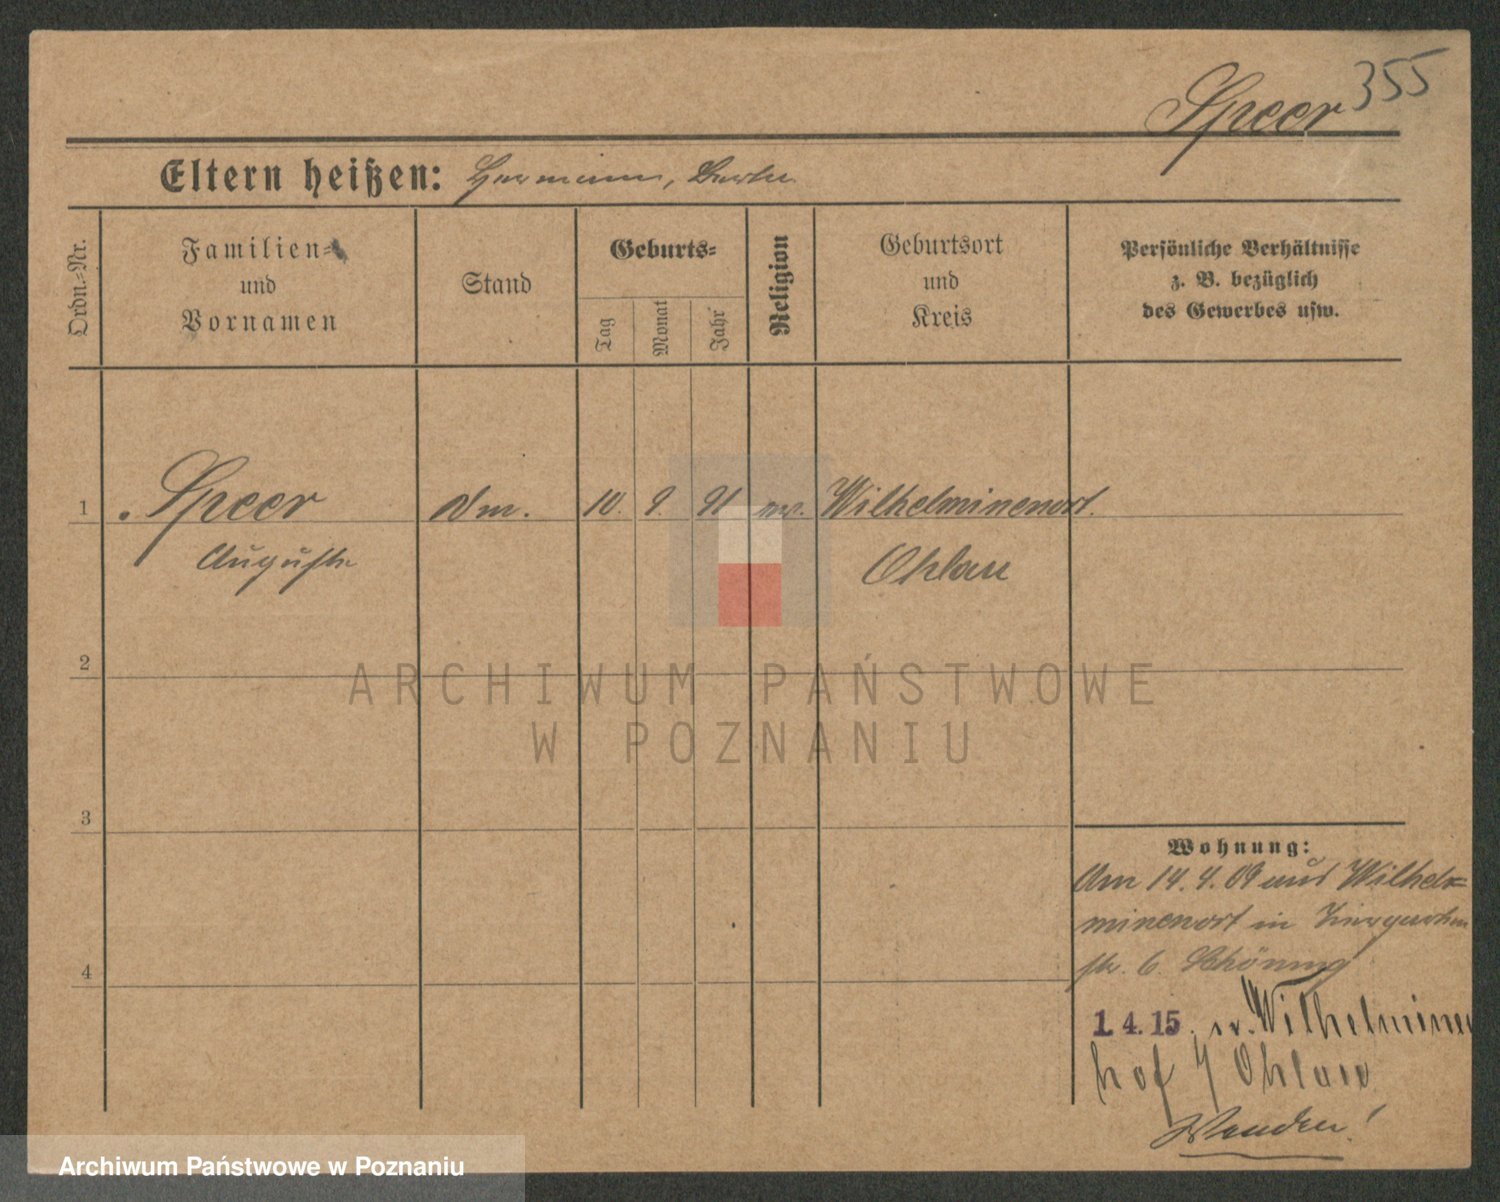 355
Speer
Eltern heißen: Hermann, Berta
Ordn.=Nr.
Familien=
und
Vornamen
Stand
Geburts=
Tag
Monat
Jahr
Religion
Geburtsort
und
Kreis
Persönliche Verhältnisse
z. B. bezüglich
des Gewerbes usw.
1 Speer Dm. 10. 9. 91 ev. Wilhelminenort.
Auguste Ohlau
2
3
4
Wohnung:
Am 14.4.09 aus Wilhel=
minenort in
str. 6. Schöning
1.4.15. n. Wilhelminen
hof / Ohlau
Wenden!
ARCHIWUM PAŃSTWOWE
W POZNANIU
Archiwum Państwowe w Poznaniu